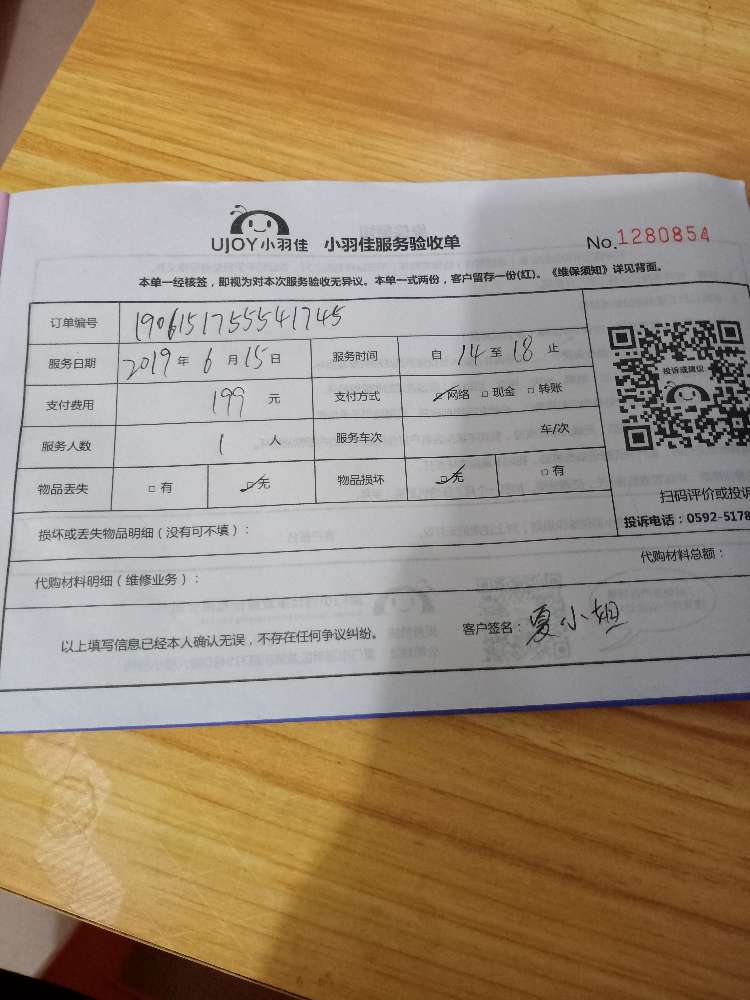 UJOY小羽佳 小羽佳服务验收单 No.1280854
本单一经核签，即视为对本次服务验收无异议。本单一式两份，客户留存一份(红)。《维保须知》详见背面。
订单编号 1906151755541745
服务日期 2019年6月15日 服务时间 自14至18止
支付费用 199元 支付方式 ☑网络 □现金 □转账
服务人数 1人 服务车次 车/次
物品丢失 □有 ☑无 物品损坏 ☑无 □有
投诉或建议
扫码评价或投诉
投诉电话：0592-5178
损坏或丢失物品明细（没有可不填）：
代购材料明细（维修业务）： 代购材料总额：
以上填写信息已经本人确认无误，不存在任何争议纠纷。 客户签名：夏小姐